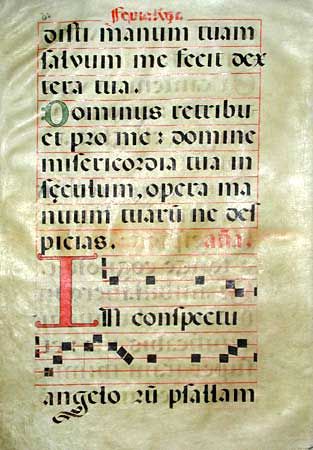 disti manum tuam
salvum me fecit dex
tera tua.
Dominus retribu
et pro me: domine
misericordia tua in
sęculum, opera ma
nuum tuarũ ne des
picias. aña.
IN conspectu
angelo rũ psallam